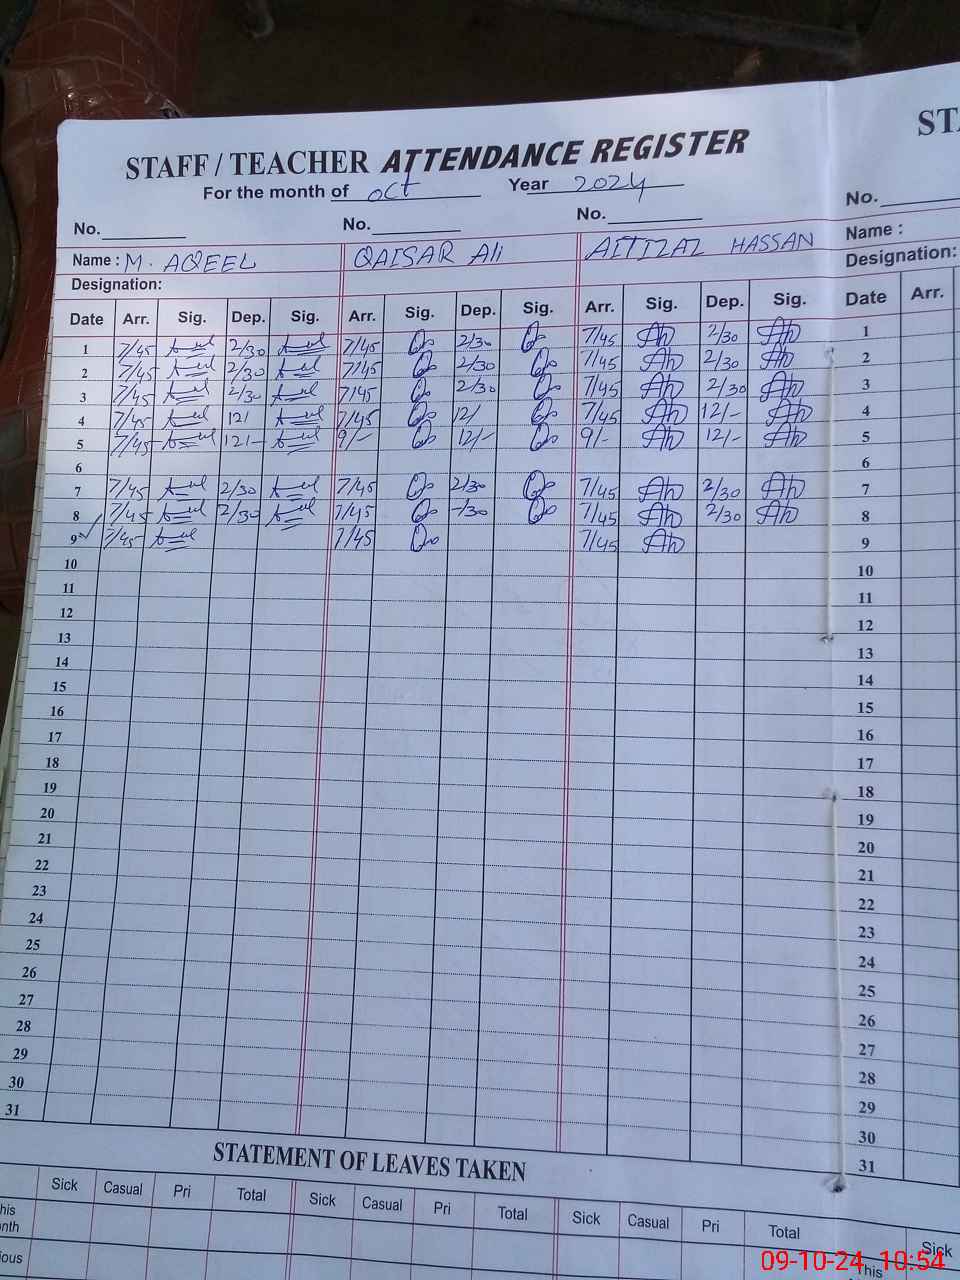 STAFF / TEACHER ATTENDANCE REGISTER ST
For the month of oct Year 2024
No. No. No. No.
Name : M. AQEEL QAISAR Ali AITIZAZ HASSAN Name :
Designation: Designation:
Date Arr. Sig. Dep. Sig. Arr. Sig. Dep. Sig. Arr. Sig. Dep. Sig. Date Arr.
1 7/45 2/30 7/45 2/30 7/45 2/30 1
2 7/45 2/30 7/45 2/30 7/45 2/30 2
3 7/45 2/30 7/45 2/30 7/45 2/30 3
4 7/45 12/ 7/45 12/ 7/45 12/- 4
5 7/45 12/- 9/- 12/- 9/- 12/- 5
6 6
7 7/45 2/30 7/45 2/30 7/45 2/30 7
8 7/45 2/30 7/45 /30 7/45 2/30 8
9 7/45 7/45 7/45 9
10 10
11 11
12 12
13 13
14 14
15 15
16 16
17 17
18 18
19 19
20 20
21 21
22 22
23 23
24 24
25 25
26 26
27 27
28 28
29 29
30 30
31 31
STATEMENT OF LEAVES TAKEN
Sick Casual Pri Total Sick Casual Pri Total Sick Casual Pri Total Sick
his
nth
ious This
09-10-24 10:54